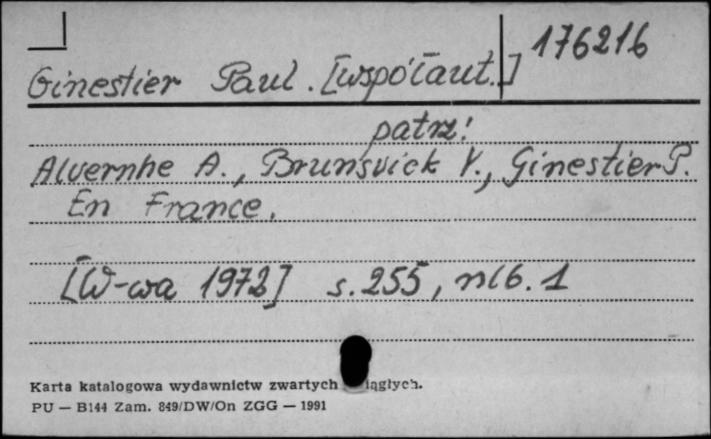 176216
Ginestier Paul. [współaut.]
patrz!
Alvernhe A., Brunsvick Y., Ginestier P.
En France.
[W-wa 1972] s. 255, nlb. 1
Karta katalogowa wydawnictw zwartych iągłych.
PU — B144 Zam. 849/DW/On ZGG — 1991